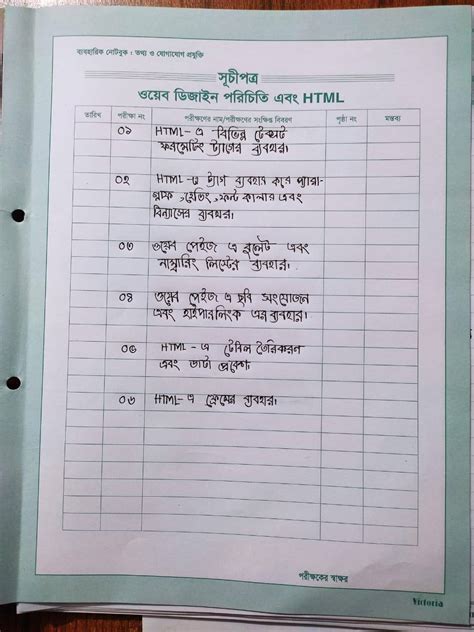 ব্যবহারিক নোটবুক : তথ্য ও যোগাযোগ প্রযুক্তি
সূচীপত্র
ওয়েব ডিজাইন পরিচিতি এবং HTML
তারিখ পরীক্ষা নং পরীক্ষণের নাম/পরীক্ষণের সংক্ষিপ্ত বিবরণ পৃষ্ঠা নং মন্তব্য
০১ HTML-এ বিভিন্ন টেক্সট
ফরমেটিং ট্যাগের ব্যবহার।
০২ HTML-এ ট্যাগ ব্যবহার করে প্যারা-
গ্রাফ, হেডিং, ফন্ট কালার এবং
বিন্যাসের ব্যবহার।
০৩ ওয়েব পেইজ এ বুলেট এবং
নাম্বারিং লিস্টের ব্যবহার।
০৪ ওয়েব পেইজ এ ছবি সংযোজন
এবং হাইপারলিংক এর ব্যবহার।
০৫ HTML-এ টেবিল তৈরিকরন
এবং ডাটা প্রবেশ।
০৬ HTML-এ ফ্রেমের ব্যবহার।
পরীক্ষকের স্বাক্ষর
Victoria